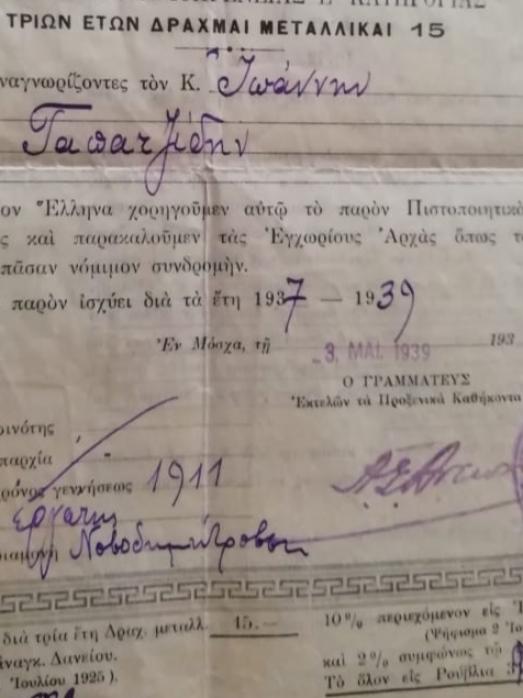 ΤΡΙΩΝ ΕΤΩΝ ΔΡΑΧΜΑΙ ΜΕΤΑΛΛΙΚΑΙ 15
ναγνωρίζοντες τὸν Κ. Ἰωάννην
Γαπατζίδην
ον Ἕλληνα χορηγοῦμεν αὐτῷ τὸ παρὸν Πιστοποιητικὸ
ς καὶ παρακαλοῦμεν τὰς Ἐγχωρίους Ἀρχὰς ὅπως τ
πᾶσαν νόμιμον συνδρομήν.
παρὸν ἰσχύει διὰ τὰ ἔτη 1937 — 1939
Ἐν Μόσχᾳ, τῇ 3. MAI. 1939 193
Ο ΓΡΑΜΜΑΤΕΥΣ
Ἐκτελῶν τὰ Προξενικὰ Καθήκοντα
οινότης
παρχία
ρόνος γεννήσεως 1911
εργάτης
διαμονὴ
διὰ τρία ἔτη Δραχ. μεταλλ. 15.—
άναγκ. Δανείου.
Ἰουλίου 1925 ).
10% περιεχόμενον εἰς
(Ψήφισμα 2
καὶ 2% συμφώνως τῷ
Τὸ ὅλον εἰς Ρούβλια